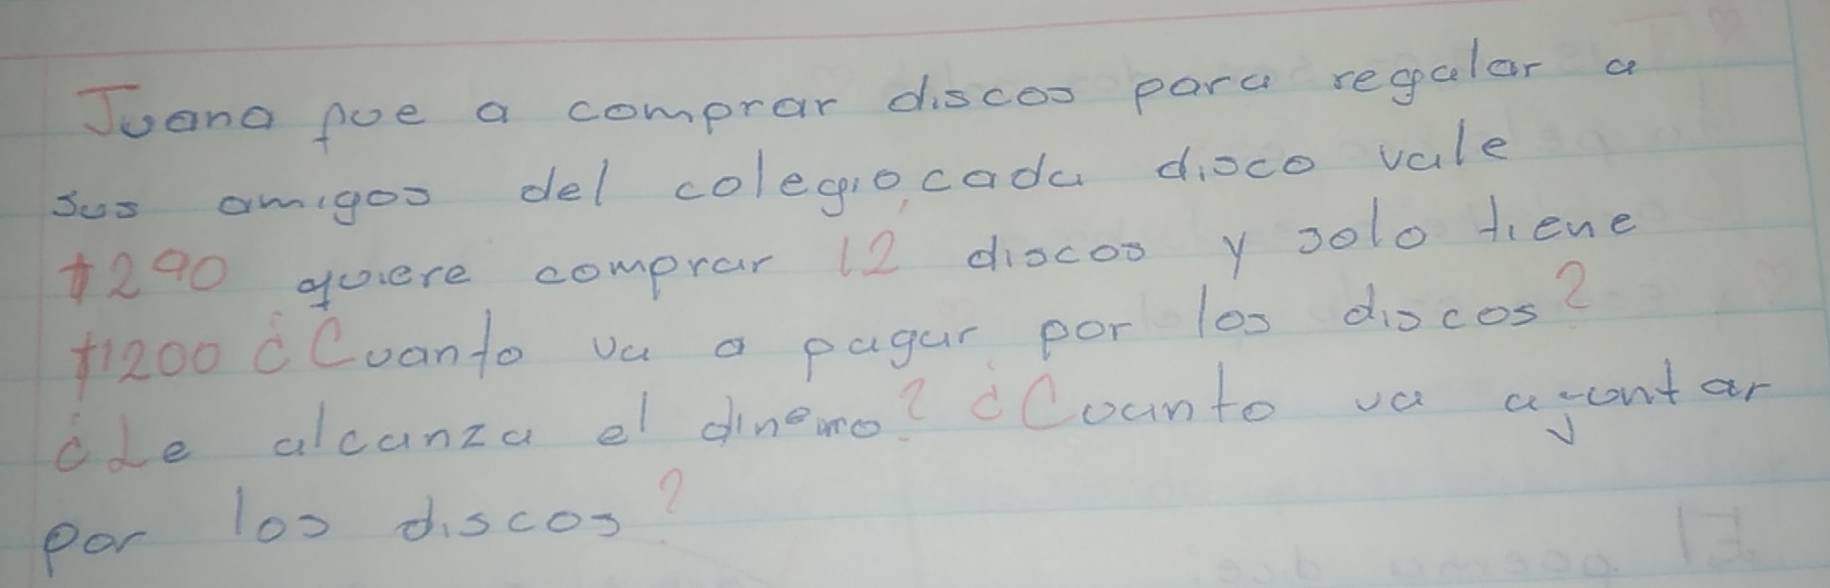 Juana fue a comprar discos para regalar a
sus amigos del colegio, cada disco vale
$290 quiere comprar 12 discos y solo tiene
$1200 ¿Cuanto va a pagar por los discos?
¿Le alcanza el dinero? ¿Cuanto va ajuntar
por los discos?